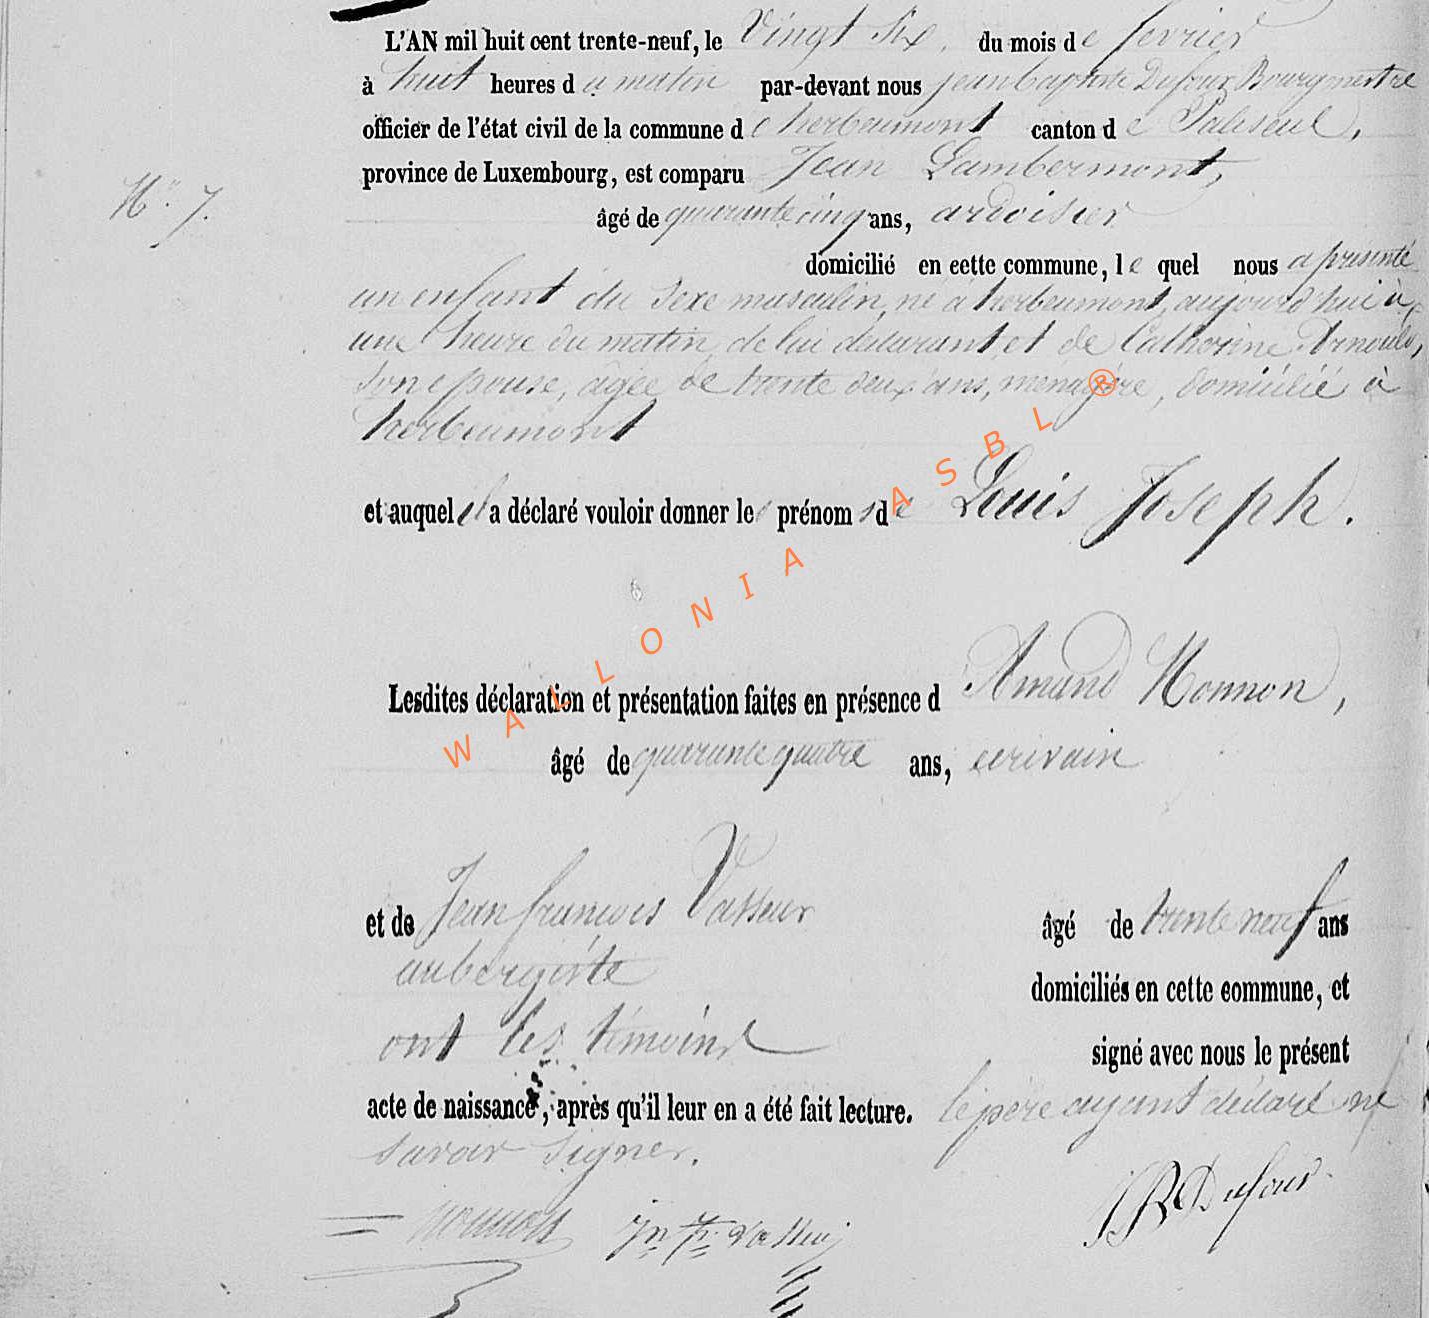 L'AN mil huit cent trente-neuf, le vingt six, du mois de fevrier
à huit heures du matin par-devant nous jean baptiste Dufour Bourgmestre
officier de l'état civil de la commune de herbeumont canton de Paliseul,
province de Luxembourg, est comparu Jean Lambermont,
N° 7.
âgé de quarante cinq ans, ardoisier
domicilié en cette commune, le quel nous a présenté
un enfant du sexe masculin, né à herbeumont, aujourd'hui à
une heure du matin, de lui déclarant et de Catherine Arnould,
son epouse, âgée de trente deux ans, menagère, domicilié à
herbeumont
et auquel il a déclaré vouloir donner les prénoms de Louis Joseph.
Lesdites déclaration et présentation faites en présence d Amand Monnon,
âgé de quarante quatre ans, ecrivain
et de Jean françois Vasseur âgé de trente neuf ans
aubergiste domiciliés en cette commune, et
ont les témoins signé avec nous le présent
acte de naissance, après qu'il leur en a été fait lecture. le père ayant déclaré ne
savoir signer.
JB Dufour
Jn Fs Vasseur
WALLONIA ASBL ®